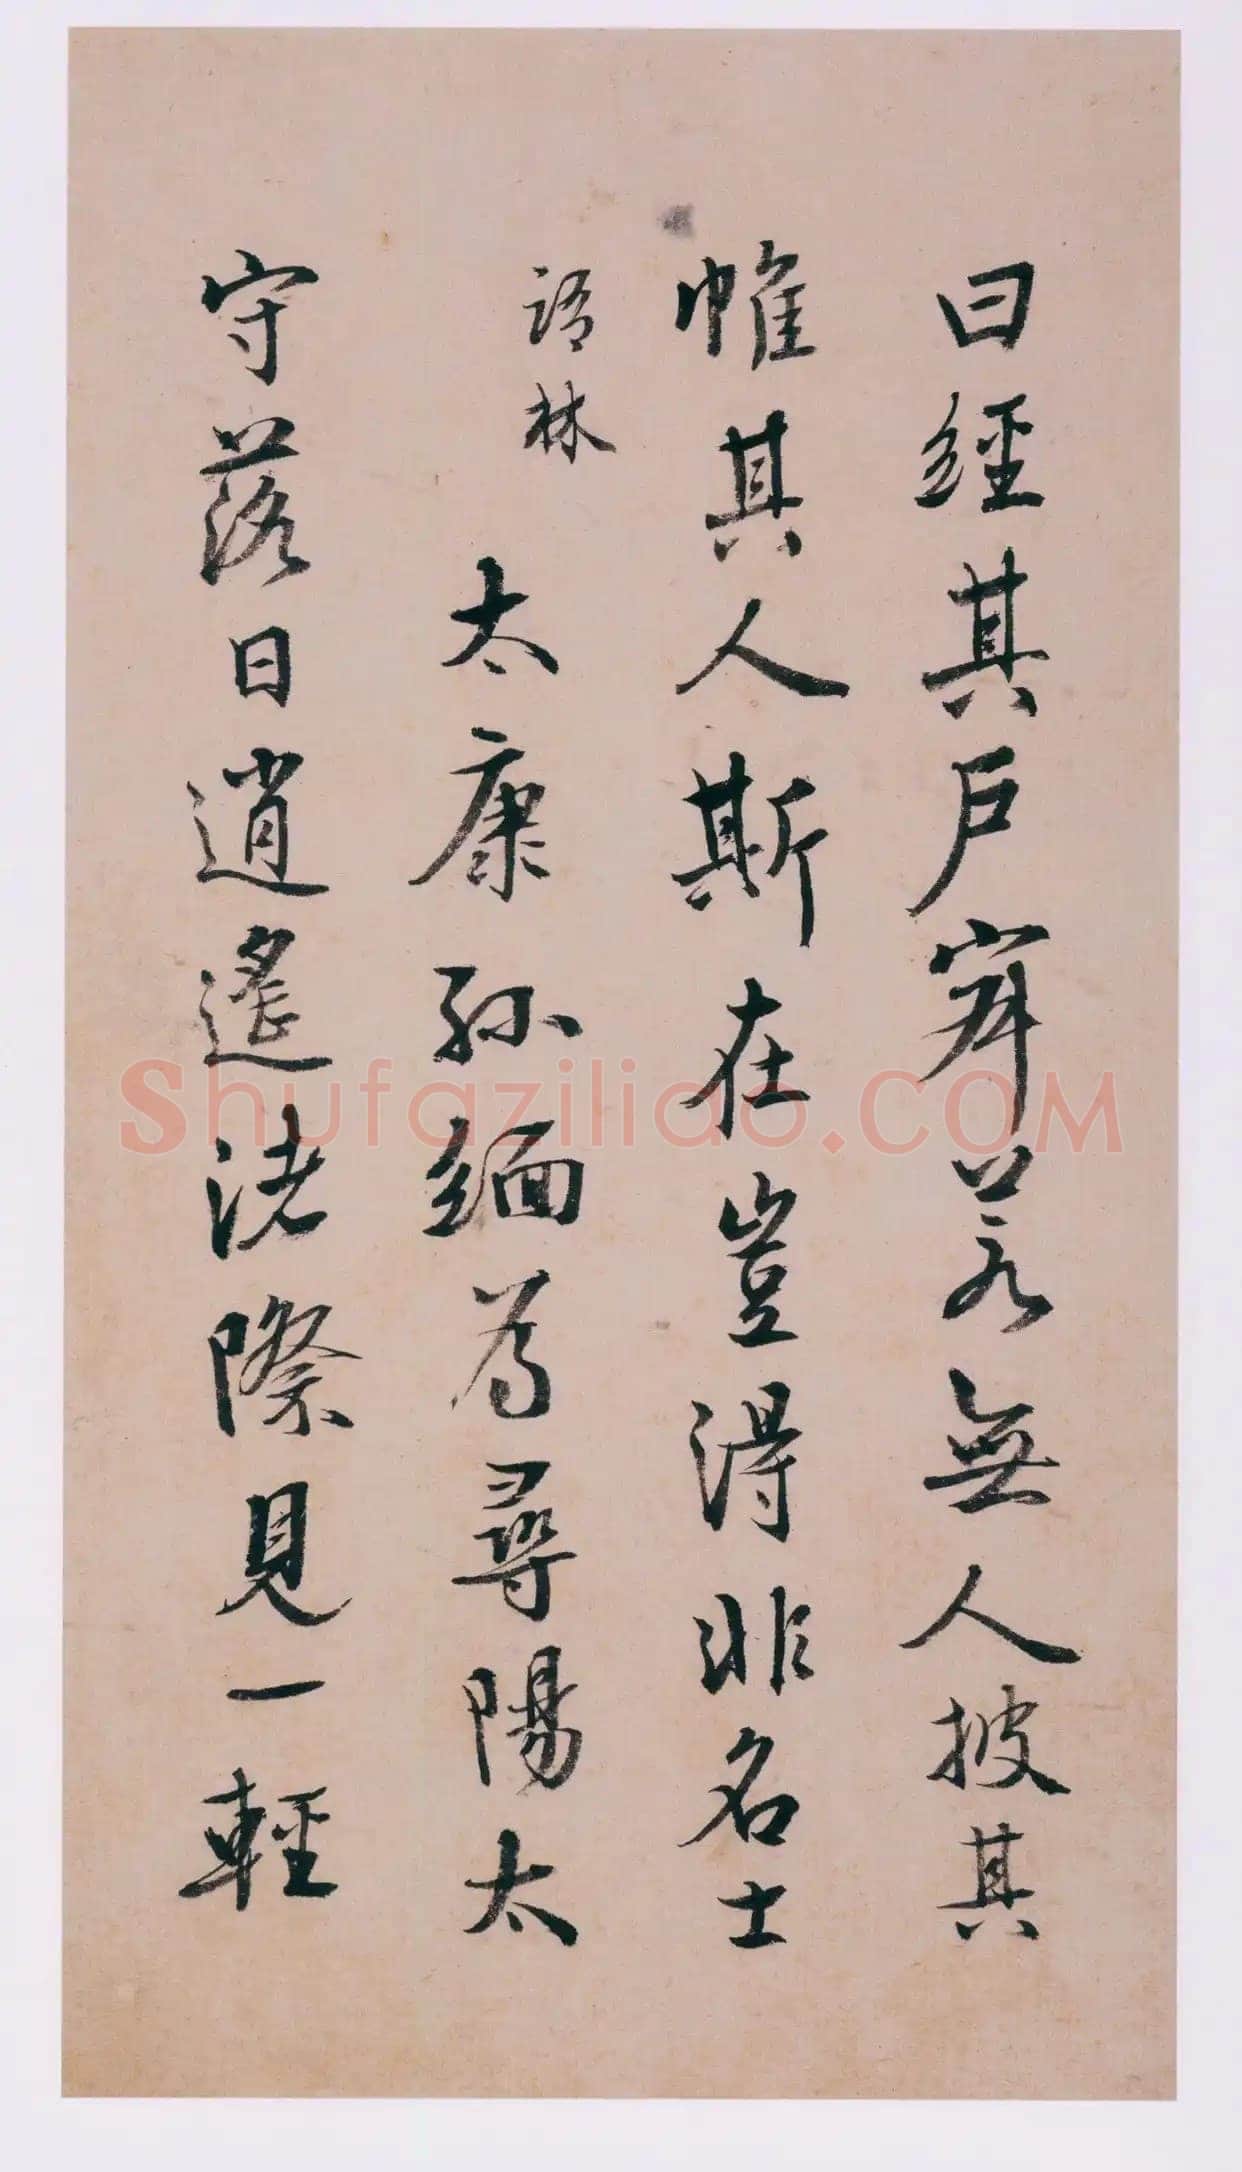 曰經其戶寂若無人披其
帷其人斯在豈得非名士
語林
太康孫緬為尋陽太
守落日逍遙渚際見一輕
Shufaziliao.COM